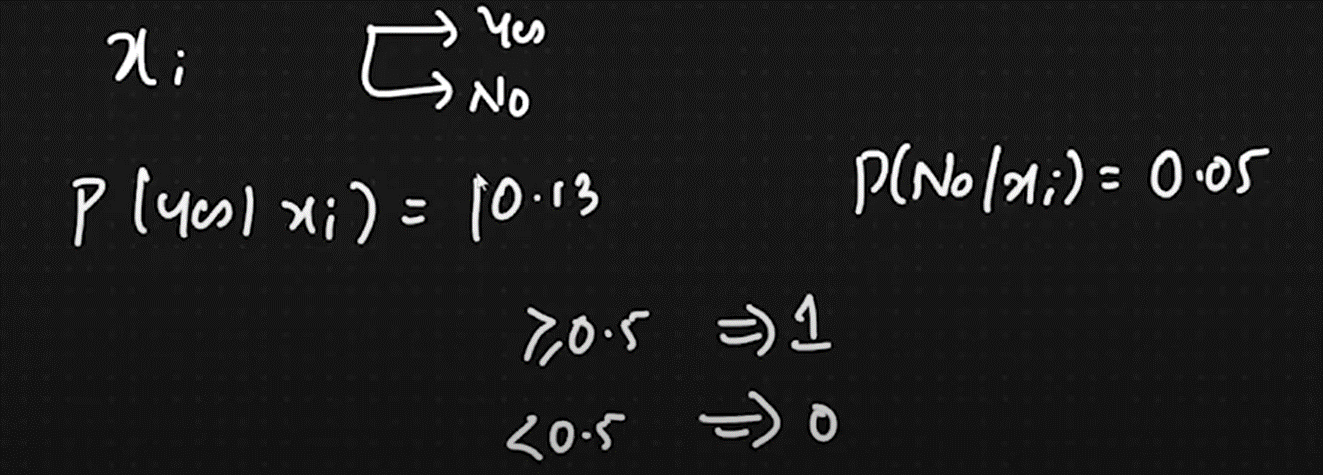 xi → Yes
→ No
P(yes|xi) = |0.13 P(No/xi) = 0.05
≥0.5 => 1
<0.5 => 0